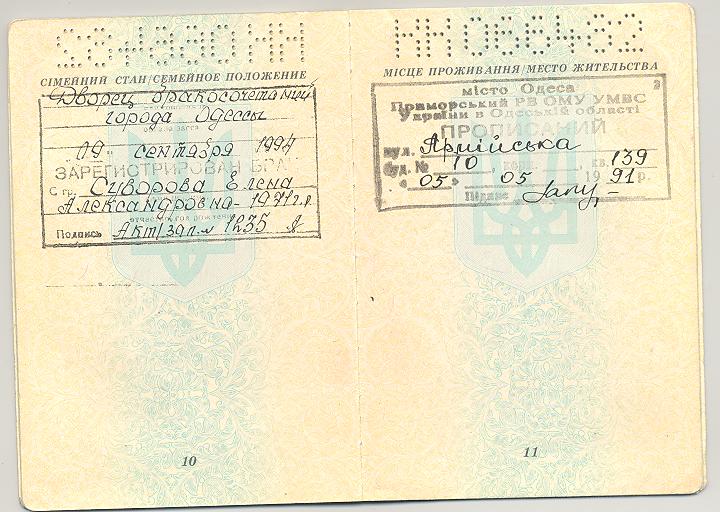 НН066482
СІМЕЙНИЙ СТАН/СЕМЕЙНОЕ ПОЛОЖЕНИЕ
Дворец бракосочетаний
города Одессы
09 сентября 1994
ЗАРЕГИСТРИРОВАН БРАК
С гр. Сиворова Елена
Александровна - 1971 г.р.
Подпись Акт/зап. № 1235
10
НН066482
МІСЦЕ ПРОЖИВАННЯ/МЕСТО ЖИТЕЛЬСТВА
місто Одеса
Приморський РВ ОМУ УМВС
України в Одеській області
ПРОПИСАНИЙ
вул. Армійська
буд. № 10, корп. кв. 139
«05» 05 1991 р.
Підпис
11